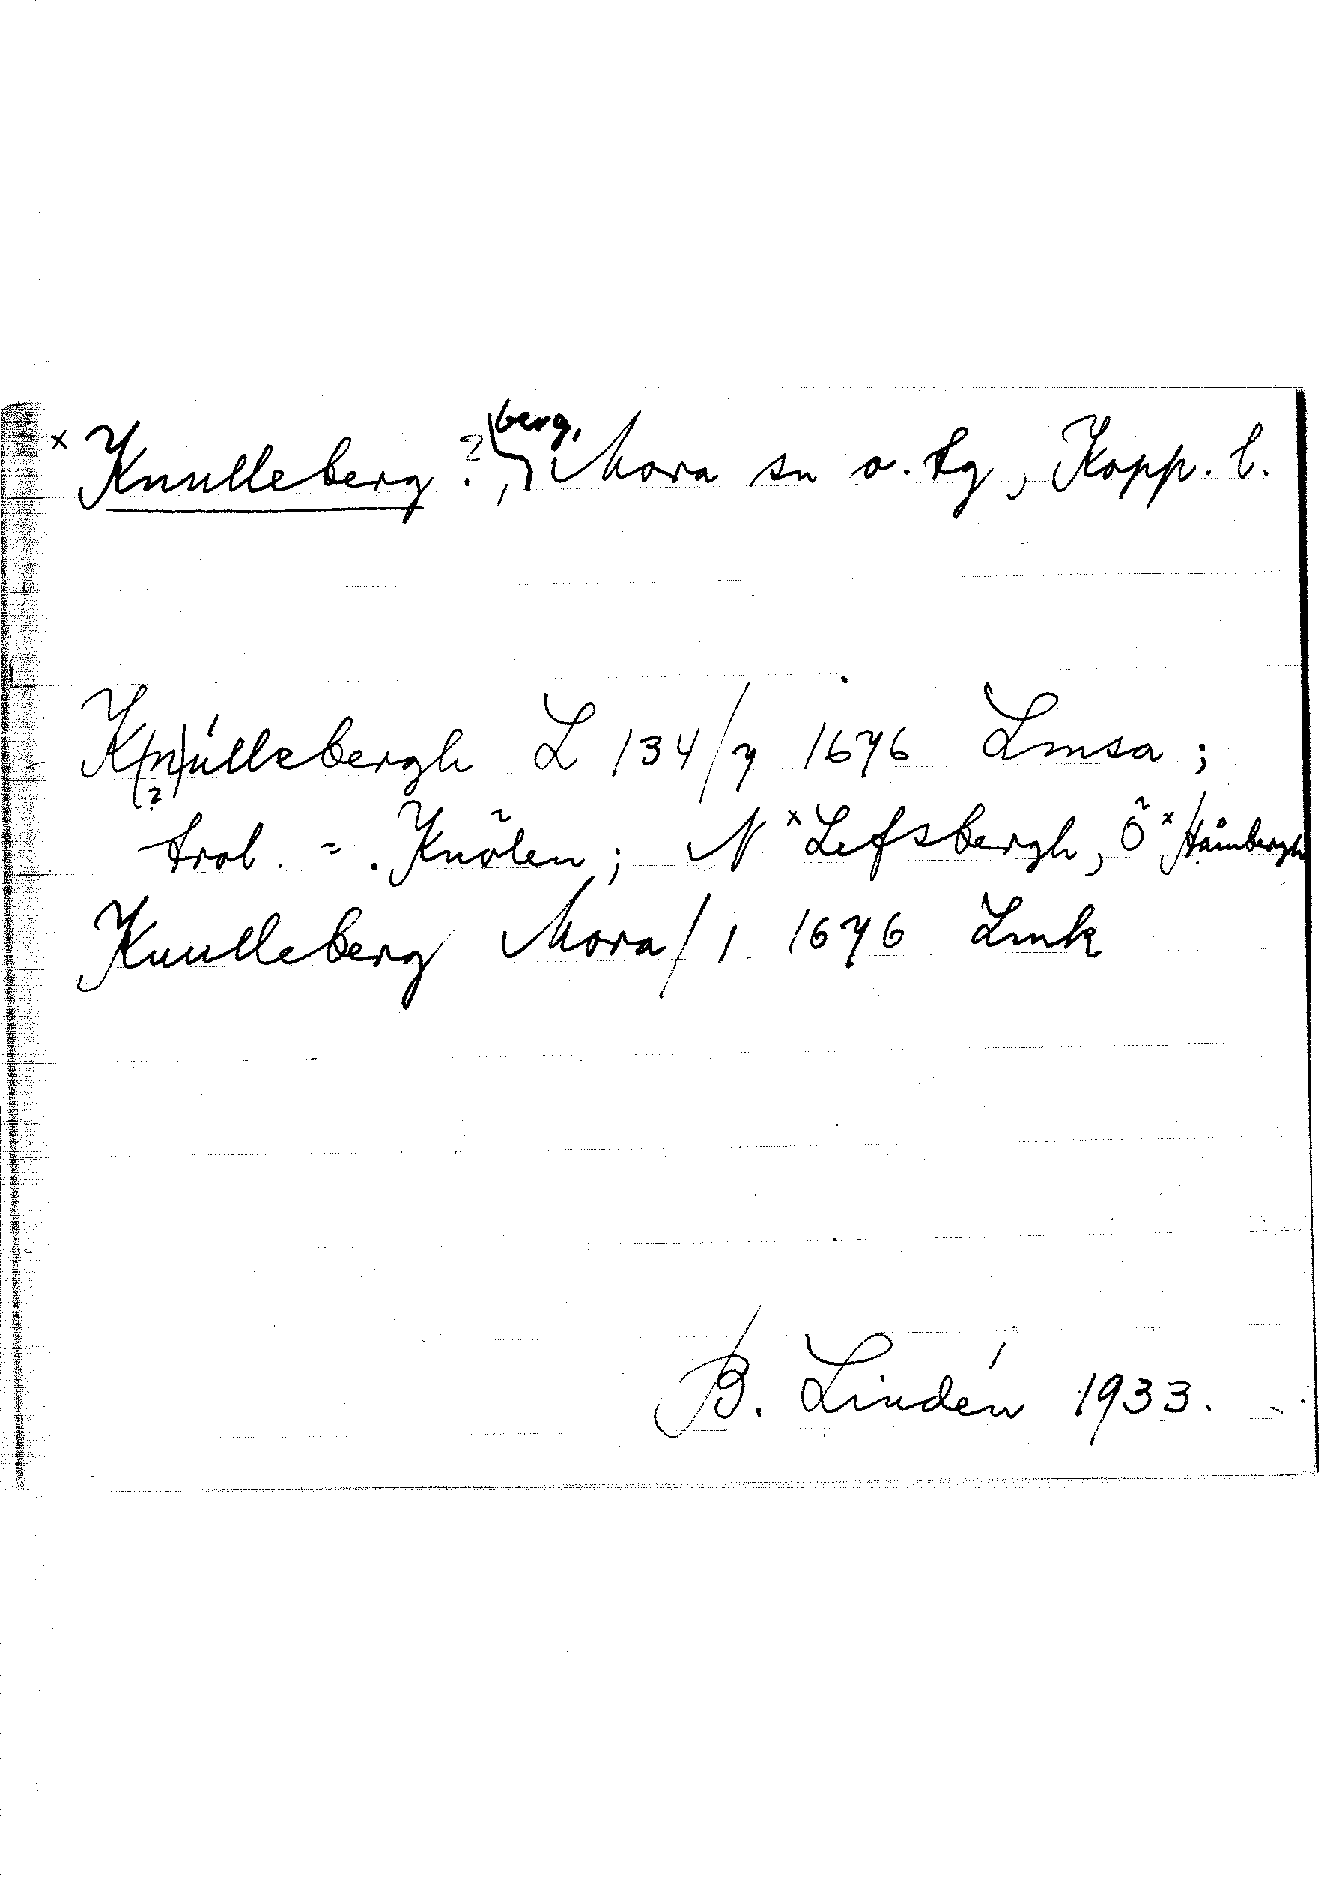 x Knulleberg ?, berg, Mora sn o. tg, Kopp. l.
K(n)ullebergh L 134/7 1676 Lmsa;
(?)
trol. = . Knölen; N x Lefsbergh, Ö x Håmbergh
Knulleberg Mora/1 1676 Lmk
B. Lindén 1933.